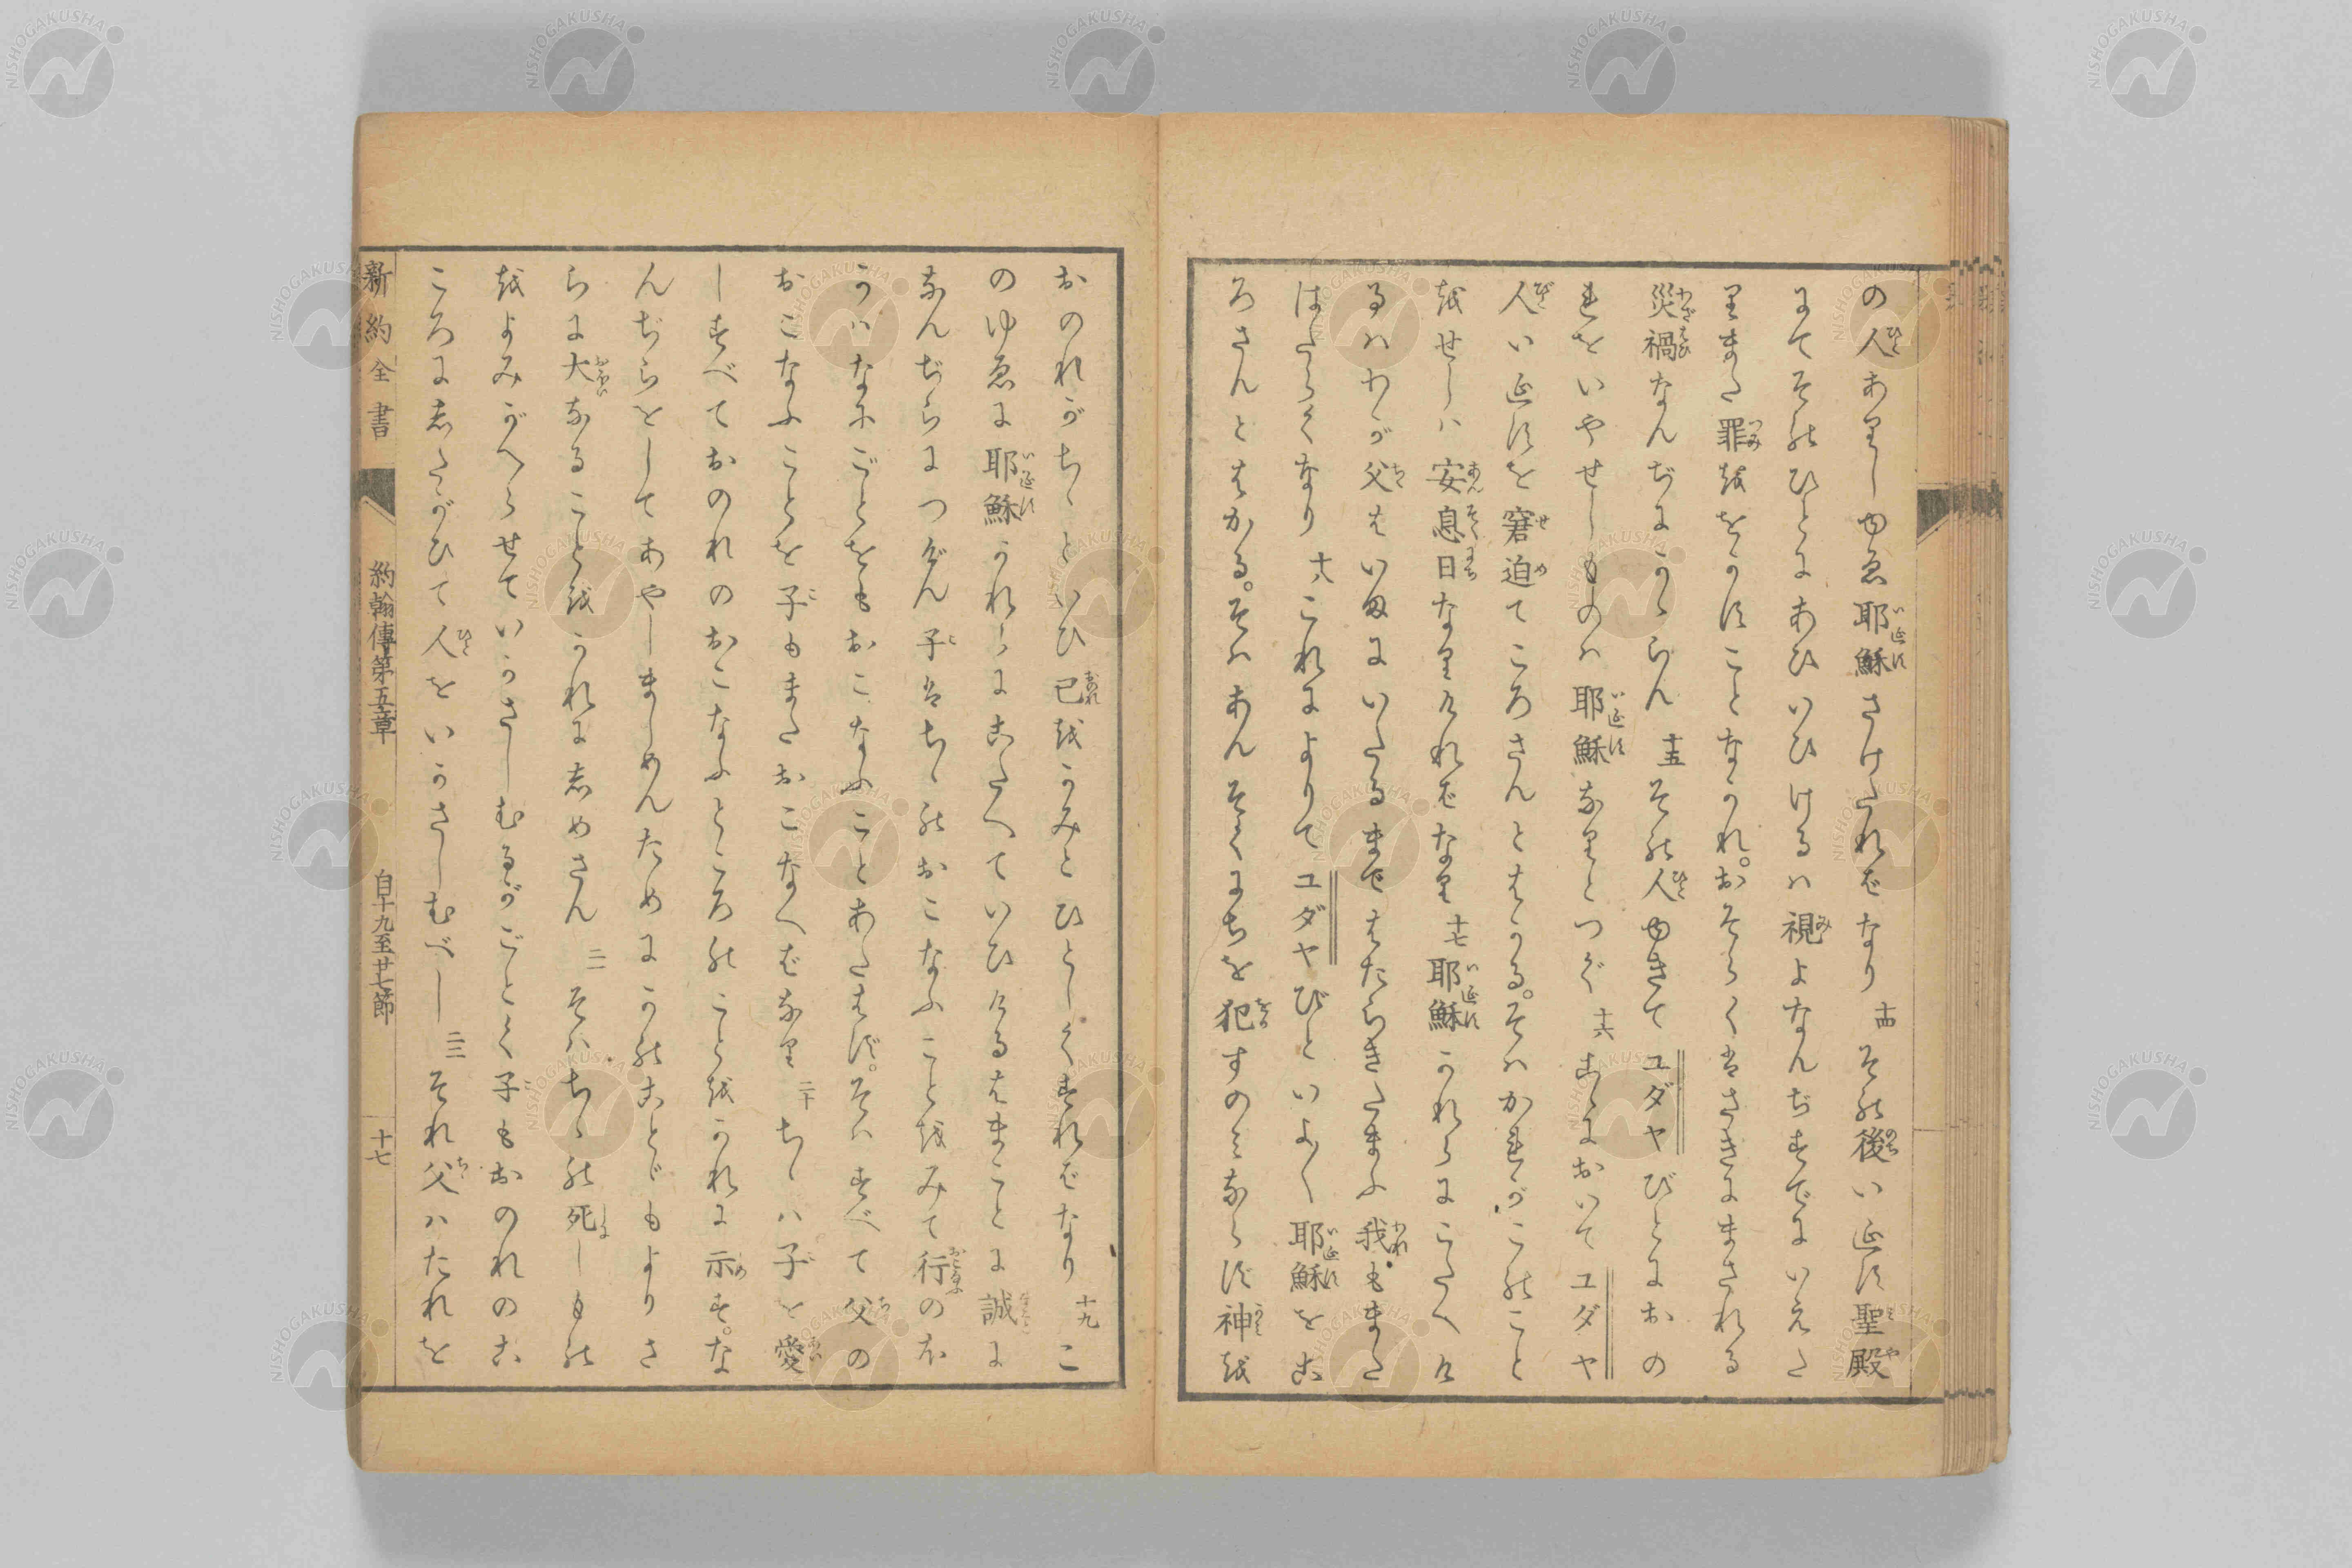 の人ありしゆゑ耶穌さけたればなり 十四 その後いエス聖殿
にてそのひとにあひいひけるハ視よなんぢすでにいえた
りまた罪ををかすことなかれ。おそらくはさきにまされる
災禍なんぢにかゝらん 十五 その人ゆきてユダヤびとにおの
れをいやせしものハ耶穌なりとつぐ 十六 こゝにおいてユダヤ
人いエスを窘迫てころさんとはかる。そハかれがこのこと
をせしハ安息日なりければなり 十七 耶穌かれらにこたへけ
るハわが父はいまにいたるまではたらきたまふ我もまた
はたらくなり 十八 これによりてユダヤびといよ〱耶穌をこ
ろさんとはかる。そハあんそくにちを犯すのみならず神を
おのれがちゝといひ己をかみとひとしくすればなり 十九 こ
のゆゑに耶穌かれらにこたへていひけるはまことに誠に
なんぢらにつげん子はちゝのおこなふことをみて行のほ
かハなにごとをもおこなふことあたはず。そハすべて父の
おこなふことを子もまたおこなへばなり 二十 ちゝハ子を愛
しすべておのれのおこなふところのことをかれに示す。な
んぢらをしてあやしましめんためにかのことどもよりさ
らに大なることをかれにしめさん 二一 そハちゝの死しもの
をよみがへらせていかさしむるがごとく子もおのれのこ
ころにしたがひて人をいかさしむべし 二二 それ父ハたれを
新約全書 約翰傳第五章 自十九至廿七節 十七
NISHOGAKUSHA